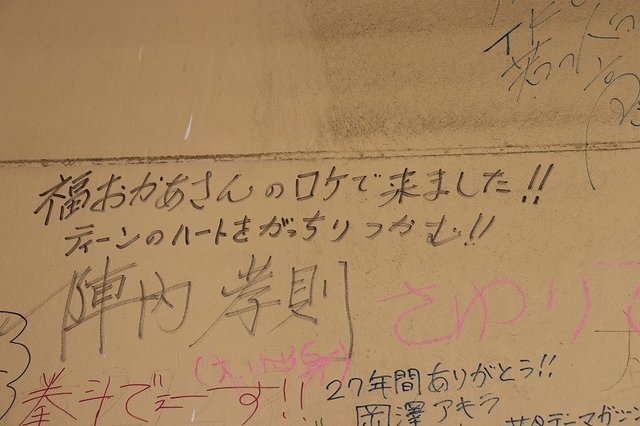 福おかあさんのロケで来ました!!
ティーンのハートをがっちりつかむ!!
陣内 孝則
さゆり
拳斗でぇーす!!
27年間ありがとう!!
岡澤アキラ
サタデーマガジン